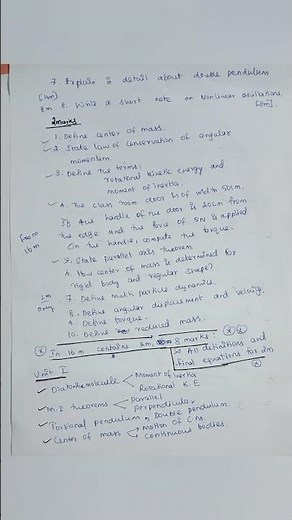 7. Explain in detail about double pendulum
[16m]
8m 8. Write a short note on Nonlinear oscillations.
[8m].
2marks
1. Define center of mass.
2. State law of conservation of angular
momentum
3. Define the terms:
rotational kinetic energy and
moment of inertia.
4. The class room door is of width 50cm.
If the handle of the door is 20cm from
the edge and the force of 5N is applied
on the handle, compute the torque.
from
16m
5. State parallel axis theorem
6. How center of mass is determined for
rigid body and regular shape?
2m
only
7. Define multi particle dynamics.
8. Define angular displacement and velocity.
9. Define torque.
10. Define reduced mass.
In 16m contains 8m, 8 marks.
All definitions and
final equations for 2m
Unit I
Diatomic molecule Moment of inertia
Rotational K.E
M.I theorems parallel
perpendicular
Torsional pendulum, Double pendulum
Center of mass Motion of C.m.
Continuous bodies.